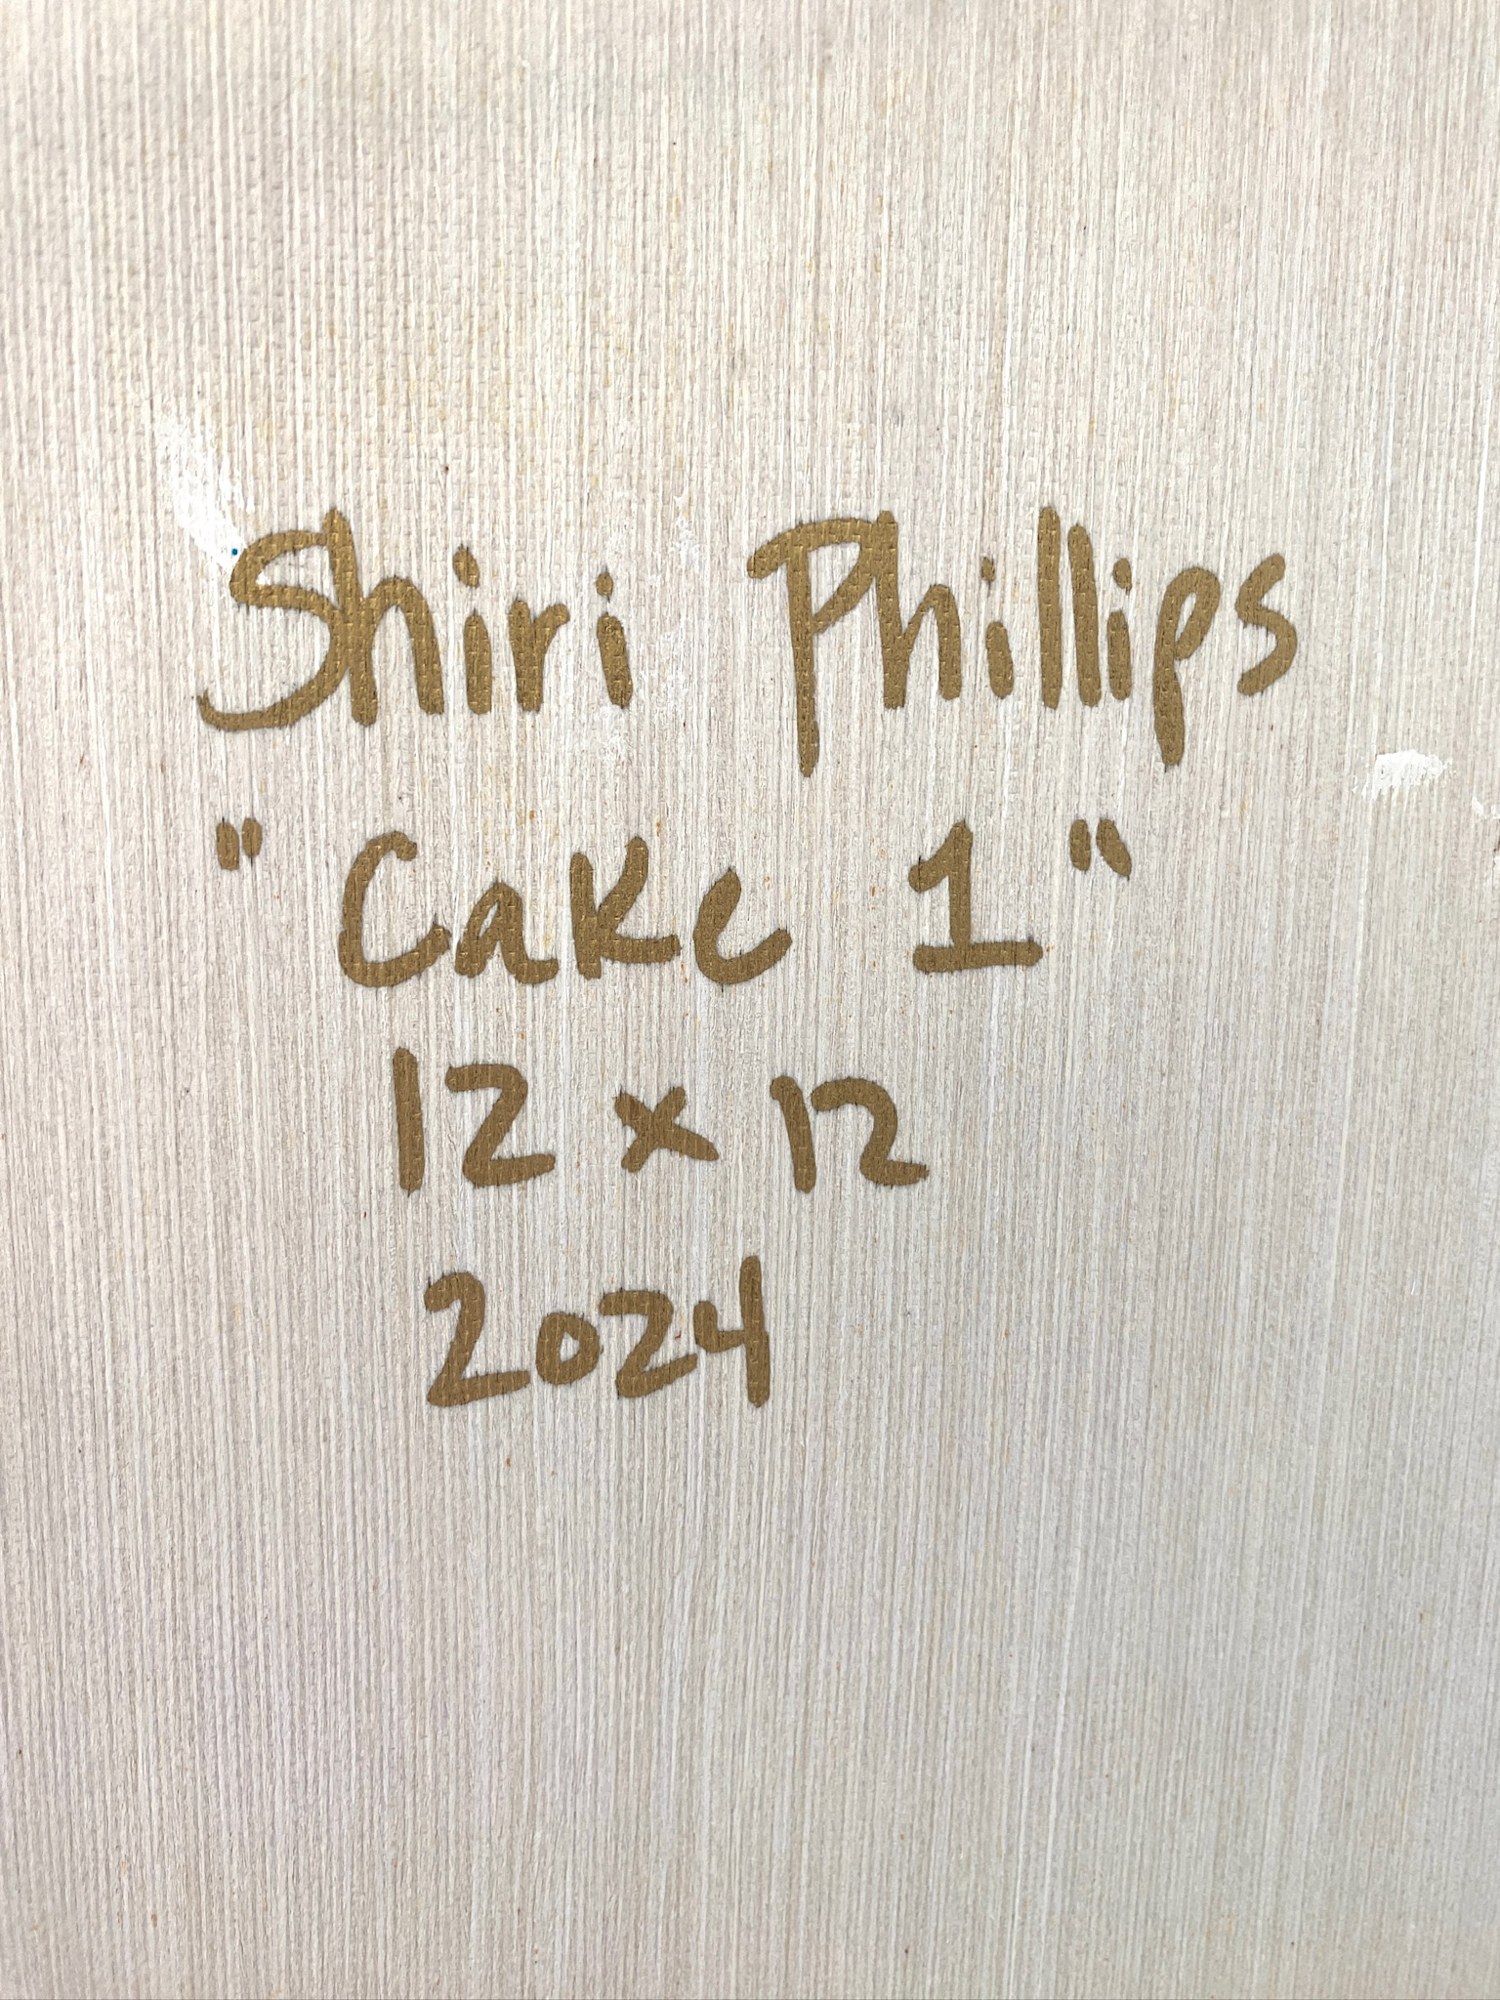 Shiri Phillips
"Cake 1"
12 x 12
2024